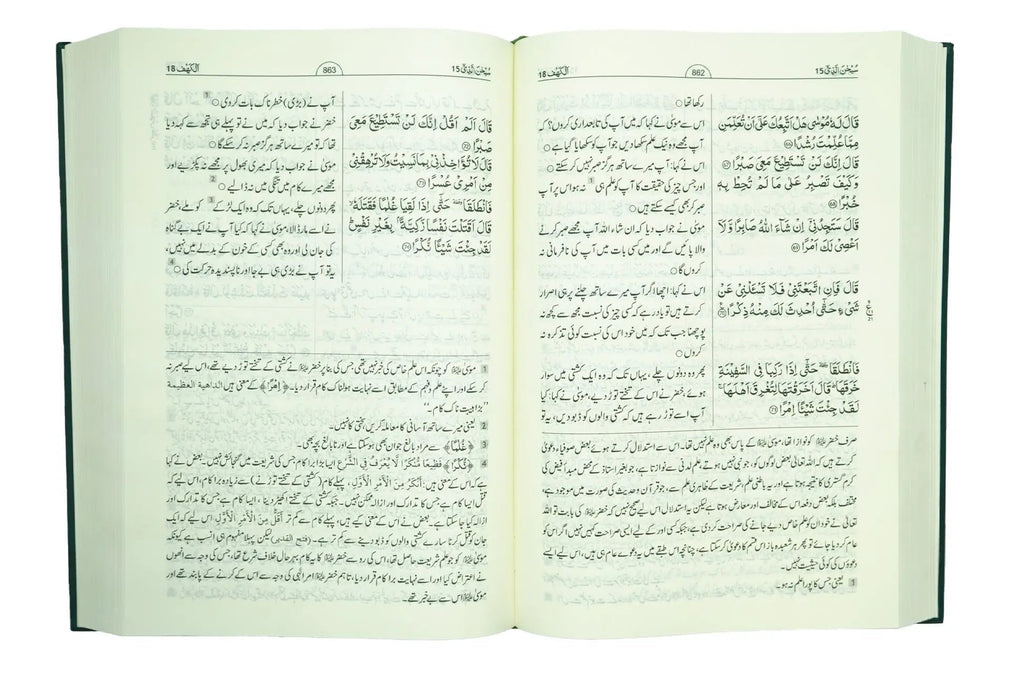 سُبْحٰنَ الَّذِیْٓ 15
862
اَلْکَہْف 18
قَالَ لَهٗ مُوْسٰى هَلْ اَتَّبِعُكَ عَلٰٓى اَنْ تُعَلِّمَنِ
مِمَّا عُلِّمْتَ رُشْدًا ﴿٦٦﴾
قَالَ اِنَّكَ لَنْ تَسْتَطِيْعَ مَعِيَ صَبْرًا ﴿٦٧﴾
وَكَيْفَ تَصْبِرُ عَلٰى مَا لَمْ تُحِطْ بِهٖ
خُبْرًا ﴿٦٨﴾
قَالَ سَتَجِدُنِيْٓ اِنْ شَآءَ اللّٰهُ صَابِرًا وَّلَآ
اَعْصِيْ لَكَ اَمْرًا ﴿٦٩﴾
قَالَ فَاِنِ اتَّبَعْتَنِيْ فَلَا تَسْـَٔلْنِيْ عَنْ
شَيْءٍ حَتّٰٓى اُحْدِثَ لَكَ مِنْهُ ذِكْرًا ﴿٧٠﴾
فَانْطَلَقَا ۥ حَتّٰٓى اِذَا رَكِبَا فِي السَّفِيْنَةِ
خَرَقَهَا ؕ قَالَ اَخَرَقْتَهَا لِتُغْرِقَ اَهْلَهَا ۚ
لَقَدْ جِئْتَ شَيْـًٔا اِمْرًا ﴿٧١﴾
رکھا تھا ○
اس سے موسیٰ نے کہا کہ میں آپ کی تابعداری کروں؟ کہ
آپ مجھے وہ نیک علم سکھا دیں جو آپ کو سکھایا گیا ہے ○
اس نے کہا: آپ میرے ساتھ ہرگز صبر نہیں کر سکتے ○
اور جس چیز کی حقیقت کا آپ کو علم ہی 1 نہ ہو اس پر آپ
صبر کر بھی کیسے سکتے ہیں ○
موسیٰ نے جواب دیا کہ ان شاء اللہ آپ مجھے صبر کرنے
والا پائیں گے اور میں کسی بات میں آپ کی نافرمانی نہ
کروں گا ○
اس نے کہا: اچھا اگر آپ میرے ساتھ چلنے پر ہی اصرار
کرتے ہیں تو یاد رہے کہ کسی چیز کی نسبت مجھ سے کچھ نہ
پوچھنا جب تک کہ میں خود اس کی نسبت کوئی تذکرہ نہ
کروں ○
پھر وہ دونوں چلے، یہاں تک کہ وہ ایک کشتی میں سوار
ہوئے، خضر نے اس کے تختے توڑ دیے، موسیٰ نے کہا: کیا
آپ اسے توڑ رہے ہیں کہ کشتی والوں کو ڈبو دیں، یہ تو
صرف خضر علیہ السلام کو نوازا تھا، موسیٰ علیہ السلام کے پاس بھی وہ علم نہیں تھا۔ اس سے استدلال کرتے ہوئے بعض صوفیاء دعویٰ
کرتے ہیں کہ اللہ تعالیٰ بعض لوگوں کو، جو نبی نہیں ہوتے، علم لدنی سے نوازتا ہے، جو بغیر استاذ کے محض مبدأ فیض کی
کرم گستری کا نتیجہ ہوتا ہے اور یہ باطنی علم، شریعت کے ظاہری علم سے، جو قرآن و حدیث کی صورت میں موجود ہے،
مختلف بلکہ بعض دفعہ اس کے مخالف اور معارض ہوتا ہے لیکن یہ استدلال اس لیے صحیح نہیں کہ خضر علیہ السلام کی بابت تو اللہ
تعالیٰ نے خود ان کو علم خاص دیے جانے کی صراحت کر دی ہے، جبکہ کسی اور کے لیے ایسی صراحت کہیں نہیں اگر اس کو
عام کر دیا جائے تو پھر ہر شعبدہ باز اس قسم کا دعویٰ کر سکتا ہے، چنانچہ اس طبقے میں یہ دعوے عام ہی ہیں، اس لیے ایسے
دعووں کی کوئی حیثیت نہیں۔
1 یعنی جس کا پورا علم نہ ہو۔
سُبْحٰنَ الَّذِیْٓ 15
863
اَلْکَہْف 18
قَالَ اَلَمْ اَقُلْ اِنَّكَ لَنْ تَسْتَطِيْعَ مَعِيَ
صَبْرًا ﴿٧٢﴾
قَالَ لَا تُؤَاخِذْنِيْ بِمَا نَسِيْتُ وَلَا تُرْهِقْنِيْ
مِنْ اَمْرِيْ عُسْرًا ﴿٧٣﴾
فَانْطَلَقَا ۥ حَتّٰٓى اِذَا لَقِيَا غُلٰمًا فَقَتَلَهٗ ۙ
قَالَ اَقَتَلْتَ نَفْسًا زَكِيَّةًۢ بِغَيْرِ نَفْسٍ ؕ
لَقَدْ جِئْتَ شَيْـًٔا نُّكْرًا ﴿٧٤﴾
آپ نے (بڑی) خطرناک بات کر دی ○ 1
خضر نے جواب دیا کہ میں نے تو پہلے ہی تجھ سے کہہ دیا
تھا کہ تو میرے ساتھ ہرگز صبر نہ کر سکے گا ○
موسیٰ نے جواب دیا کہ میری بھول پر مجھے نہ پکڑیے اور
مجھے میرے کام میں تنگی میں نہ ڈالیے ○ 2
پھر دونوں چلے، یہاں تک کہ وہ ایک لڑکے 3 کو ملے، خضر
نے اسے مار ڈالا، موسیٰ نے کہا کہ کیا آپ نے ایک بے گناہ
کی جان لی اور وہ بھی کسی کے خون کے بدلے میں نہیں،
یہ تو آپ نے بڑی ہی بے جا اور ناپسندیدہ حرکت کی ○ 4
1 موسیٰ علیہ السلام کو چونکہ اس علم خاص کی خبر نہیں تھی، جس کی بنا پر خضر علیہ السلام نے کشتی کے تختے توڑ دیے تھے، اس لیے صبر نہ
کر سکے اور اپنے علم و فہم کے مطابق اسے نہایت ہولناک کام قرار دیا۔ ﴿اِمْرًا﴾ کے معنی ہیں الداهية العظيمة
”بڑا ہیبت ناک کام۔“
2 یعنی میرے ساتھ آسانی کا معاملہ کریں، سختی کا نہیں۔
3 ﴿غُلٰمًا﴾ سے مراد بالغ جوان بھی ہو سکتا ہے اور نابالغ بچہ بھی۔
4 ﴿نُّكْرًا﴾ فَظِيعًا مُنْكَرًا لَا يُعْرَفُ فِي الشَّرْعِ ایسا بڑا برا کام جس کی شریعت میں گنجائش نہیں۔ بعض نے کہا
ہے کہ اس کے معنی ہیں: أَنْكَرُ مِنَ الْأَمْرِ الْأَوَّلِ، پہلے کام (کشتی کے تختے توڑنے) سے زیادہ برا کام، اس لیے کہ
قتل ایسا کام ہے جس کا تدارک اور ازالہ ممکن نہیں۔ جبکہ کشتی کے تختے اکھیڑ دینا، ایسا کام ہے جس کا تدارک اور
ازالہ کیا جا سکتا ہے۔ بعض نے اس کے معنی کیے ہیں، پہلے کام سے کم تر أَقَلُّ مِنَ الْأَمْرِ الْأَوَّلِ، اس لیے کہ ایک
جان کو قتل کرنا سارے کشتی والوں کو ڈبو دینے سے کم تر ہے۔ (فتح القدیر) لیکن پہلا مفہوم ہی انسب ہے کیونکہ
موسیٰ علیہ السلام کو جو علم شریعت حاصل تھا، اس کی رو سے خضر علیہ السلام کا یہ کام بہرحال خلاف شرع تھا، جس کی وجہ سے انھوں
نے اعتراض کیا اور اسے نہایت برا کام قرار دیا، تاہم خضر علیہ السلام امر الٰہی کی وجہ سے اس کے کرنے کے پابند تھے اور
موسیٰ علیہ السلام اس سے بے خبر تھے۔